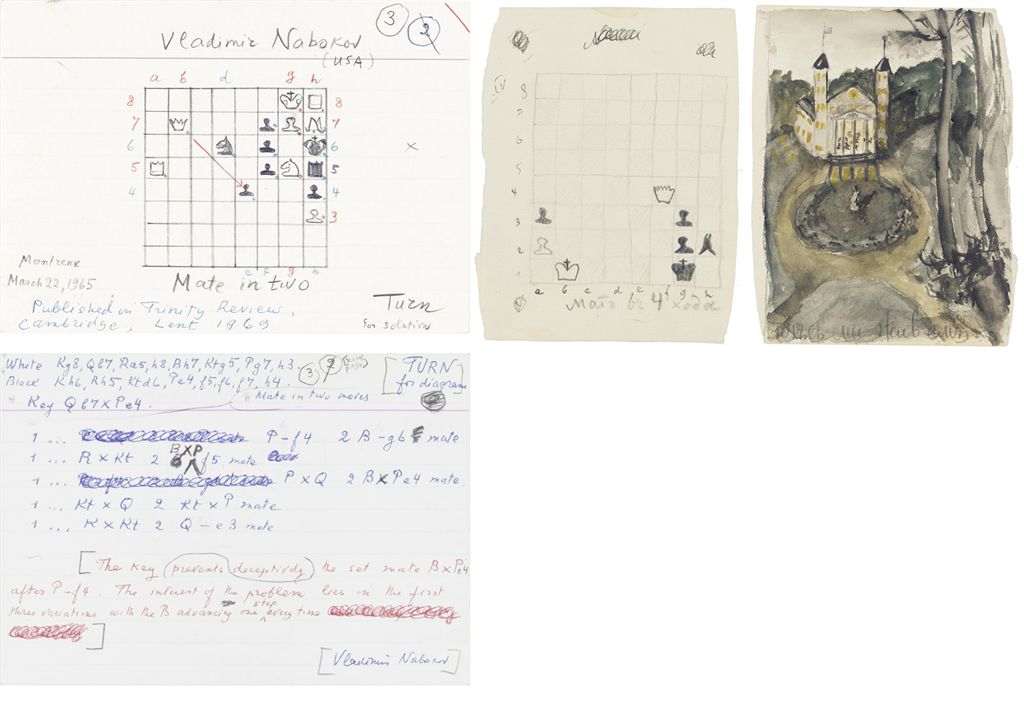 3 2
Vladimir Nabokov
(USA)
a b d g h
8 8
7 7
6 6
5 5
4 4
3
e f g h
Montreux
March 22, 1965
Mate in two
Published in Trinity Review,
Cambridge, Lent 1969
Turn
for solution
IV
8
7
6
5
4
3
2
1
a b c d e f g h
Матъ въ 4 хода
White Kg8, Qb7, Ra5, h8, Bh7, Ktg5, Pg7, h3.
Black Kh6, Rh5, Ktd6, Pe4, f5, f6, f7, h4.
3 2
[TURN
for diagram]
Key Qb7xPe4.
Mate in two moves
1 ... P-f4 2 B-g6 mate
1 ... R x Kt 2 BXP f5 mate
1 ... P x Q 2 B x Pe4 mate
1 ... Kt x Q 2 Kt x P mate
1 ... K x Kt 2 Q-e3 mate
[The key prevents deceptively the set mate B x Pe4
after P-f4. The interest of the problem lies in the first
three variations with the B advancing one step every time
]
[Vladimir Nabokov]